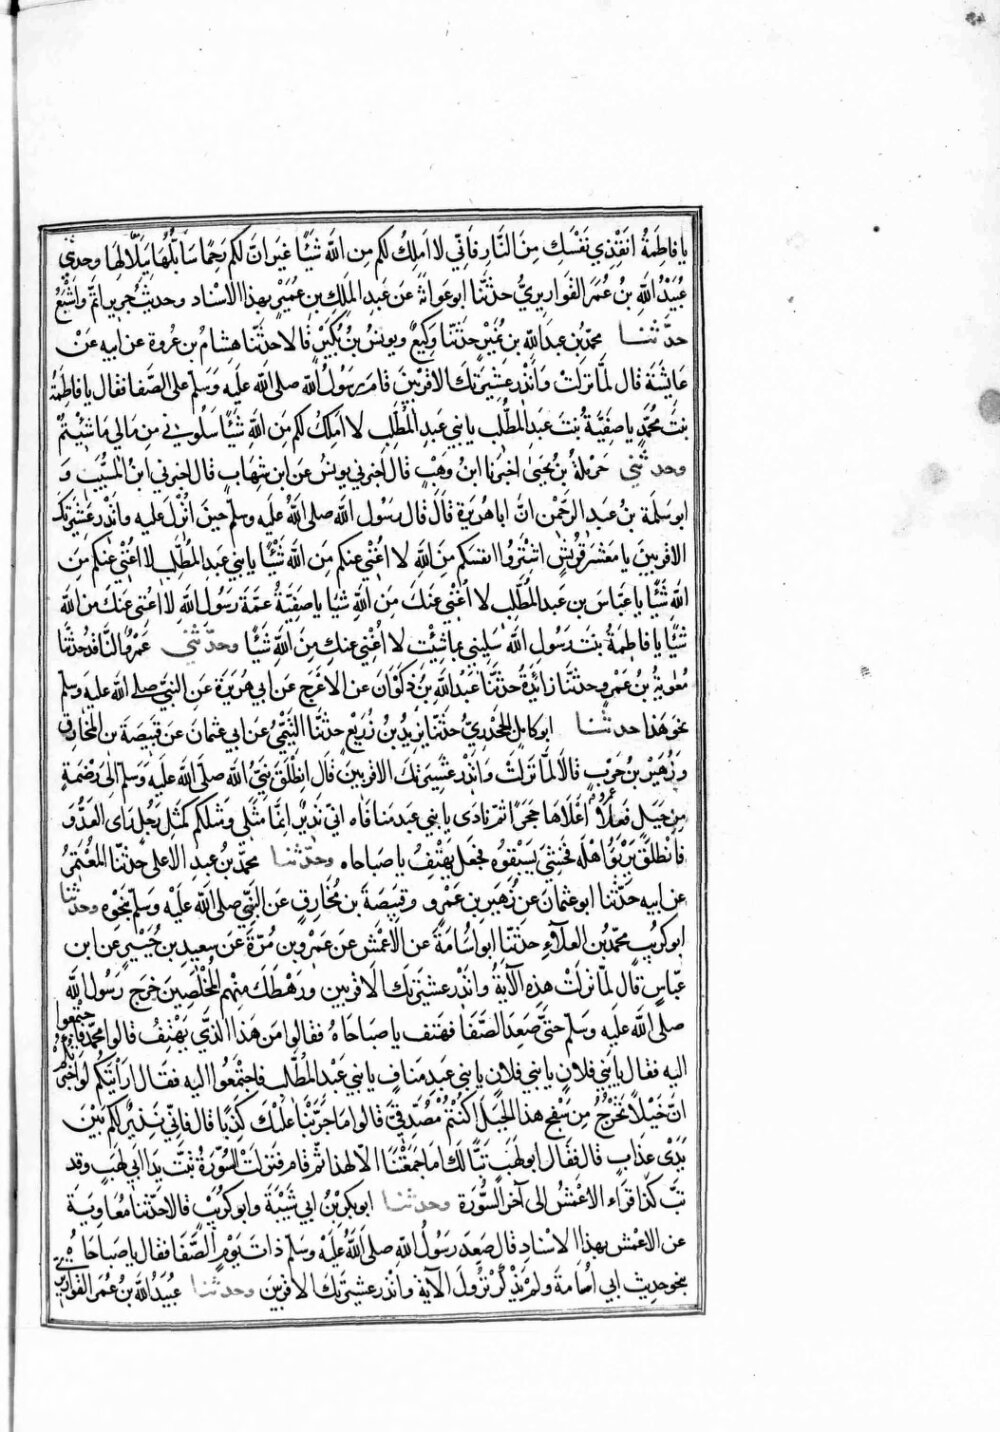 يا فاطمة انقذي نفسك من النار فاني لا املك لكم من الله شيئا غير ان لكم رحما سابلها ببلالها وحدثني
عبيد الله بن عمر القواريري حدثنا ابو عوانة عن عبد الملك بن عمير بهذا الاسناد وحديث جرير اتم واشبع
حدثنا محمد بن عبد الله بن نمير حدثنا وكيع ويونس بن بكير قالا حدثنا هشام بن عروة عن ابيه عن
عايشة قال لما نزلت وانذر عشيرتك الاقربين قام رسول الله صلى الله عليه وسلم على الصفا فقال يا فاطمة
بنت محمد يا صفية بنت عبد المطلب يا بني عبد المطلب لا املك لكم من الله شيئا سلوني من مالي ما شيتم
وحدثني حرملة بن يحيى اخبرنا ابن وهب قال اخبرني يونس عن ابن شهاب قال اخبرني ابن المسيب و
ابو سلمة بن عبد الرحمن ان ابا هريرة قال قال رسول الله صلى الله عليه وسلم حين انزل عليه وانذر عشيرتك
الاقربين يا معشر قريش اشتروا انفسكم من الله لا اغني عنكم من الله شيئا يا بني عبد المطلب لا اغني عنكم من
الله شيئا يا عباس بن عبد المطلب لا اغني عنك من الله شيا يا صفية عمة رسول الله لا اغني عنك من الله
شيئا يا فاطمة بنت رسول الله سليني بما شيت لا اغني عنك من الله شيئا وحدثني عمرو الناقد حدثنا
معوية بن عمرو حدثنا زائدة حدثنا عبد الله بن ذكوان عن الاعرج عن ابي هريرة عن النبي صلى الله عليه وسلم
نحو هذا حدثنا ابو كامل الجحدري حدثنا يزيد بن زريع حدثنا التيمي عن ابي عثمان عن قبيصة بن المخارق
وزهير بن حرب قالا لما نزلت وانذر عشيرتك الاقربين قال انطلق نبي الله صلى الله عليه وسلم الى رضمة
من جبل فعلا اعلاها حجرا ثم نادى يا بني عبد منافاه اني نذير انما مثلي ومثلكم كمثل رجل راى العدو
فانطلق يربؤ اهله فخشي يسبقوه فجعل يهتف يا صباحاه وحدثنا محمد بن عبد الاعلى حدثنا المعتمر
عن ابيه حدثنا ابو عثمان عن زهير بن عمرو وقبيصة بن مخارق عن النبي صلى الله عليه وسلم بنحوه وحدثنا
ابو كريب محمد بن العلاء حدثنا ابو اسامة عن الاعمش عن عمرو بن مرة عن سعيد بن جبير عن ابن
عباس قال لما نزلت هذه الآية وانذر عشيرتك الاقربين ورهطك منهم المخلصين خرج رسول الله
صلى الله عليه وسلم حتى صعد الصفا فهتف يا صباحاه فقالوا من هذا الذي يهتف قالوا محمد فاجتمعوا
اليه فقال يا بني فلان يا بني فلان يا بني عبد مناف يا بني عبد المطلب فاجتمعوا اليه فقال ارايتكم لو اخبرتكم
ان خيلا تخرج من سفح هذا الجبل اكنتم مصدقي قالوا ما جربنا عليك كذبا قال فاني نذير لكم بين
يدى عذاب قال فقال ابو لهب تبا لك اما جمعتنا الا لهذا ثم قام فنزلت السورة تبت يدا ابي لهب وقد
تب كذا قراء الاعمش الى آخر السورة وحدثنا ابو بكر بن ابي شيبة وابو كريب قالا حدثنا معاوية
عن الاعمش بهذا الاسناد قال صعد رسول الله صلى الله عليه وسلم ذات يوم الصفا فقال يا صباحاه
بنحو حديث ابي اسامة ولم يذكر نزول الآية وانذر عشيرتك الاقربين وحدثنا عبيد الله بن عمر القواريري